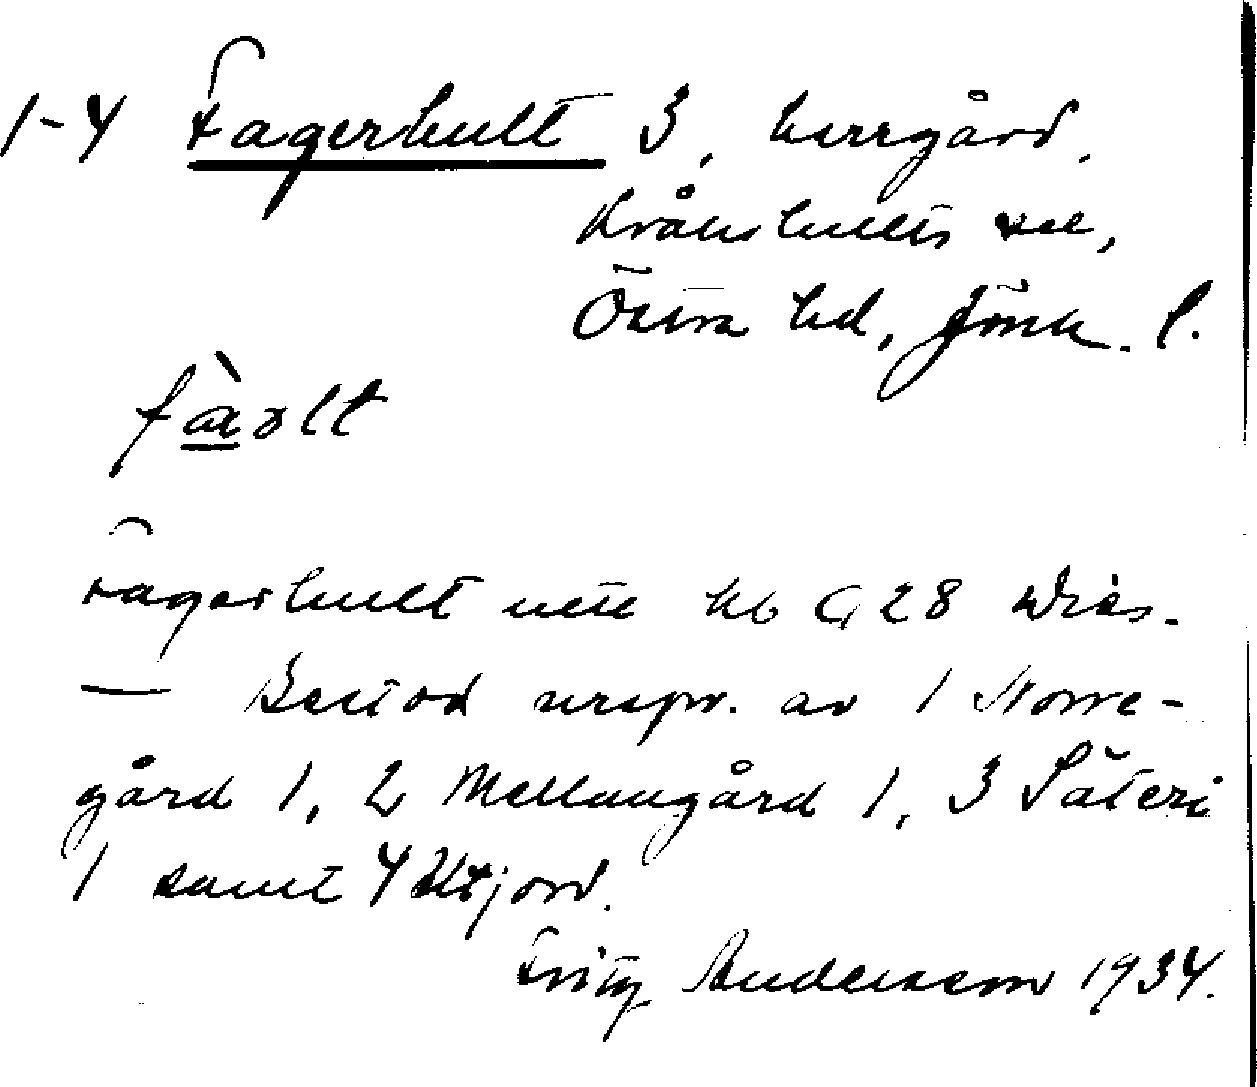 1-4 Fagerhult 3, herrgård,
Kråkshults sn,
Östra hd, Jönk. l.
Fagerhult utt. kb C, 28 Wiss.
— Bestod urspr. av 1 Norre-
gård 1, 2 Mellangård 1, 3 Säteri
1 samt 4 Utjord.
Fritz Andersson 1934.